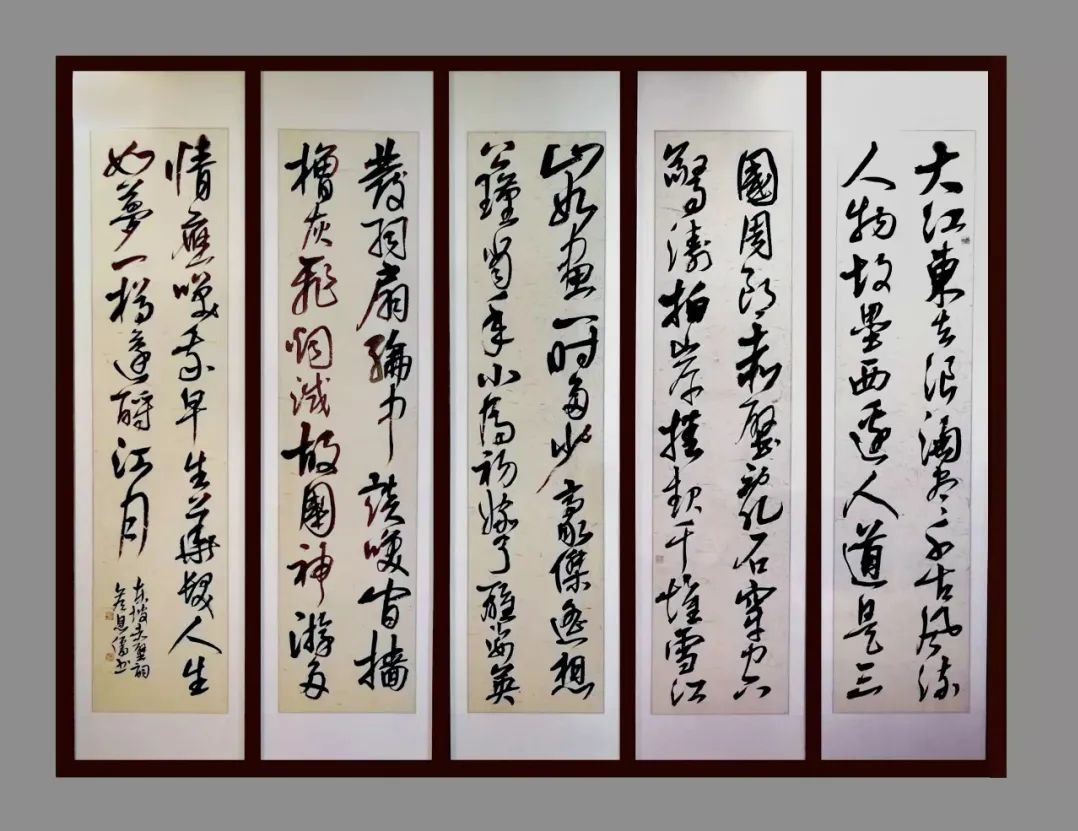 大江東去浪淘盡千古風流
人物故壘西邊人道是三
國周郎赤壁亂石穿空
驚濤拍岸捲起千堆雪江
山如畫一時多少豪傑遙想
公瑾當年小喬初嫁了雄姿英
發羽扇綸巾談笑間檣
櫓灰飛煙滅故國神遊多
情應笑我早生華髮人生
如夢一樽還酹江月
東坡赤壁詞